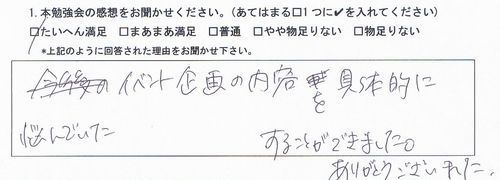 1. 本勉強会の感想をお聞かせください。(あてはまる□1つに✔を入れてください)
□たいへん満足 □まあまあ満足 □普通 □やや物足りない □物足りない
*上記のように回答された理由をお聞かせ下さい。
イベント企画の内容を具体的に
悩んでいた
することができました。
ありがとうございました。